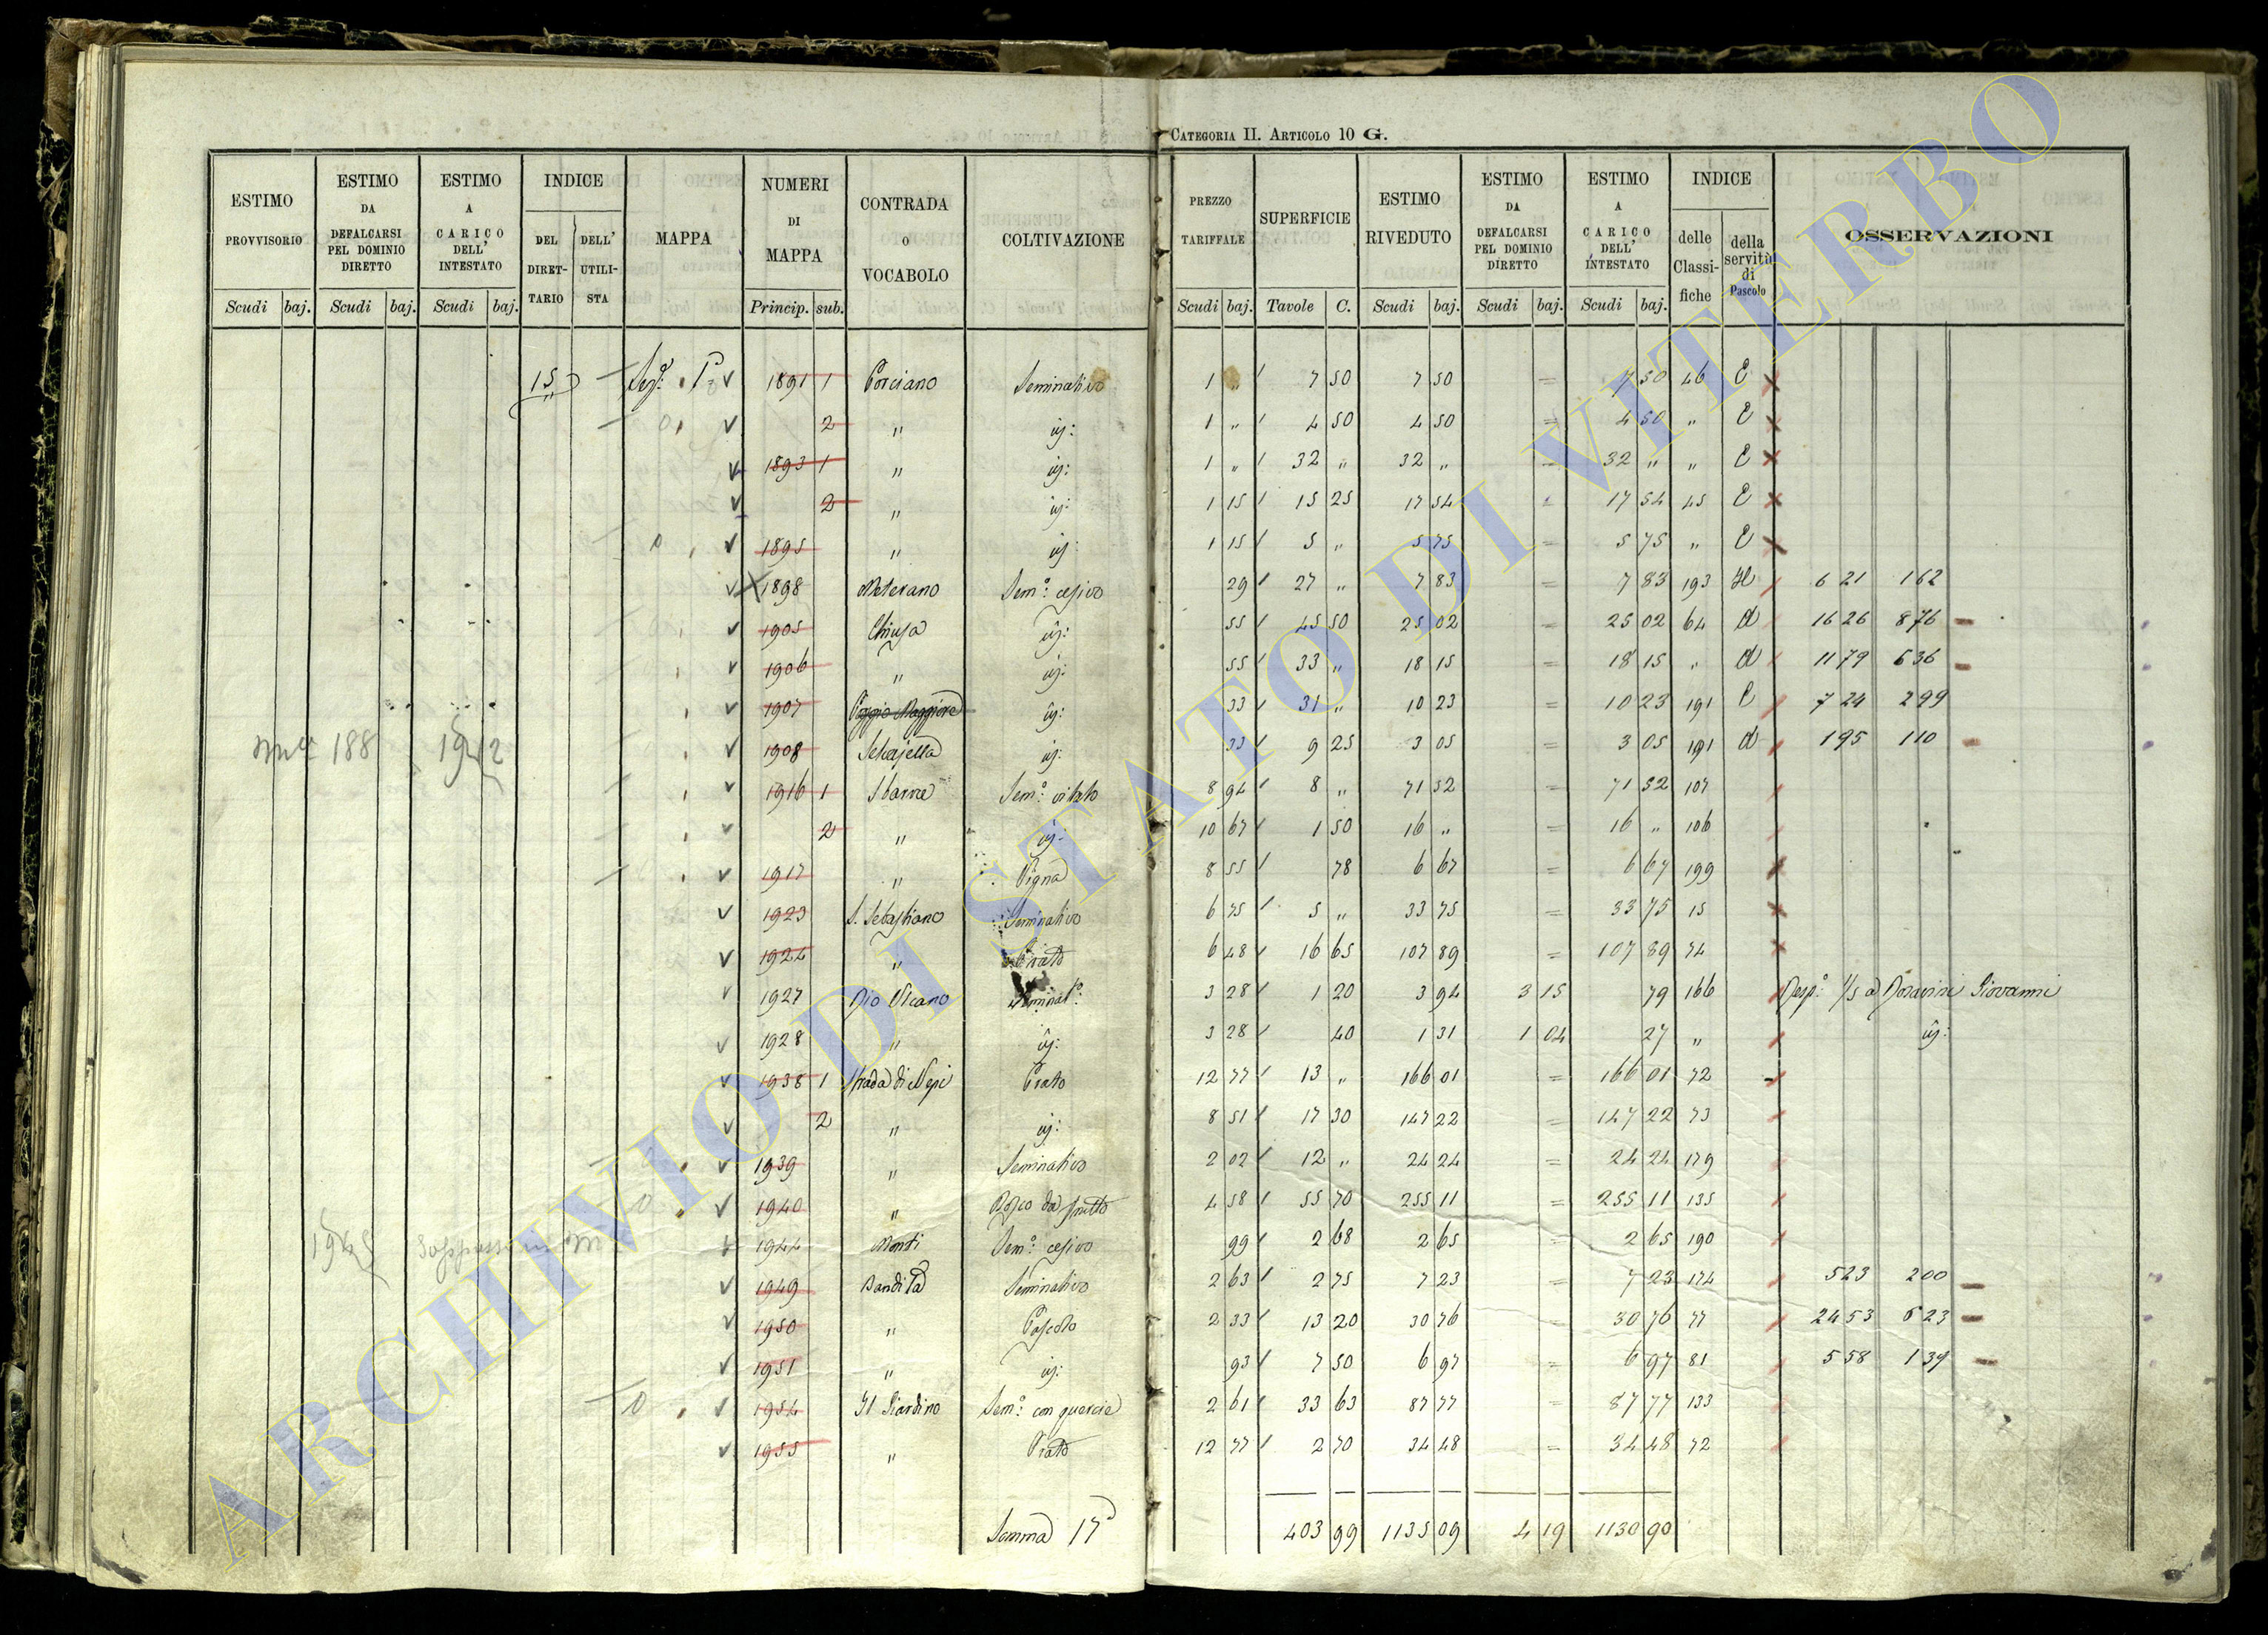 CATEGORIA II. ARTICOLO 10 G.
ESTIMO PROVVISORIO ESTIMO DA DEFALCARSI PEL DOMINIO DIRETTO ESTIMO A CARICO DELL' INTESTATO INDICE DEL DIRETTARIO DELL' UTILISTA MAPPA NUMERI DI MAPPA CONTRADA O VOCABOLO COLTIVAZIONE PREZZO TARIFFALE SUPERFICIE ESTIMO RIVEDUTO ESTIMO DA DEFALCARSI PEL DOMINIO DIRETTO ESTIMO A CARICO DELL' INTESTATO INDICE delle Classifiche della servitù di Pascolo OSSERVAZIONI
Scudi baj. Scudi baj. Scudi baj. Princip. sub. Scudi baj. Tavole C. Scudi baj. Scudi baj. Scudi baj.
15 1891 1 Porciano Seminativo 1 " 7 50 7 50 = 7 50 46 E
2 " iý: 1 " 4 50 4 50 = 4 50 " E
1893 1 " iý: 1 " 32 " 32 " = 32 " " E
2 " iý: 1 15 15 25 17 54 17 54 45 E
1895 " iý: 1 15 5 " 5 75 = 5 75 " E
1898 Meterano Sem°: cesivo 29 27 " 7 83 = 7 83 193 621 162
1905 Chiusa iý: 55 45 50 25 02 = 25 02 64 d 1626 876
1906 " iý: 55 33 " 18 15 = 18 15 " d 1179 636
1907 Poggio Maggiore iý: 33 31 " 10 23 = 10 23 191 E 724 299
188 1912 1908 Selcajella iý: 33 9 25 3 05 = 3 05 191 d 195 110
1916 1 Sbarre Sem°: vitato 8 94 8 " 71 52 = 71 52 107
2 " iý: 10 67 1 50 16 " = 16 " 106
1917 " Vigna 8 55 78 6 67 = 6 67 199
1923 S. Sebastiano Seminativo 6 75 5 " 33 75 = 33 75 15
1924 " Prato 6 48 16 65 107 89 = 107 89 74
1927 Rio Vicano Seminat°: 3 28 1 20 3 94 3 15 79 166 Resp: 1/5 a Giovanni
1928 " iý: 3 28 40 1 31 1 04 27 " iý:
1938 1 Strada di Nepi Prato 12 77 13 " 166 01 = 166 01 72
2 " iý: 8 51 17 30 147 22 = 147 22 73
1939 " Seminativo 2 02 12 " 24 24 = 24 24 179
1940 " Bosco da frutto 4 58 55 70 255 11 = 255 11 135
1944 Monti Sem°: cesivo 99 2 68 2 65 = 2 65 190
1949 Bandita Seminativo 2 63 2 75 7 23 = 7 23 174 523 200
1950 " Pascolo 2 33 13 20 30 76 = 30 76 77 2453 623
1951 " iý: 93 7 50 6 97 = 6 97 81 558 139
1954 Il Giardino Sem°: con quercie 2 61 33 63 87 77 = 87 77 133
1955 " Prato 12 77 2 70 34 48 = 34 48 72
Somma 17a 403 99 1135 09 4 19 1130 90
ARCHIVIO DI STATO DI VITERBO